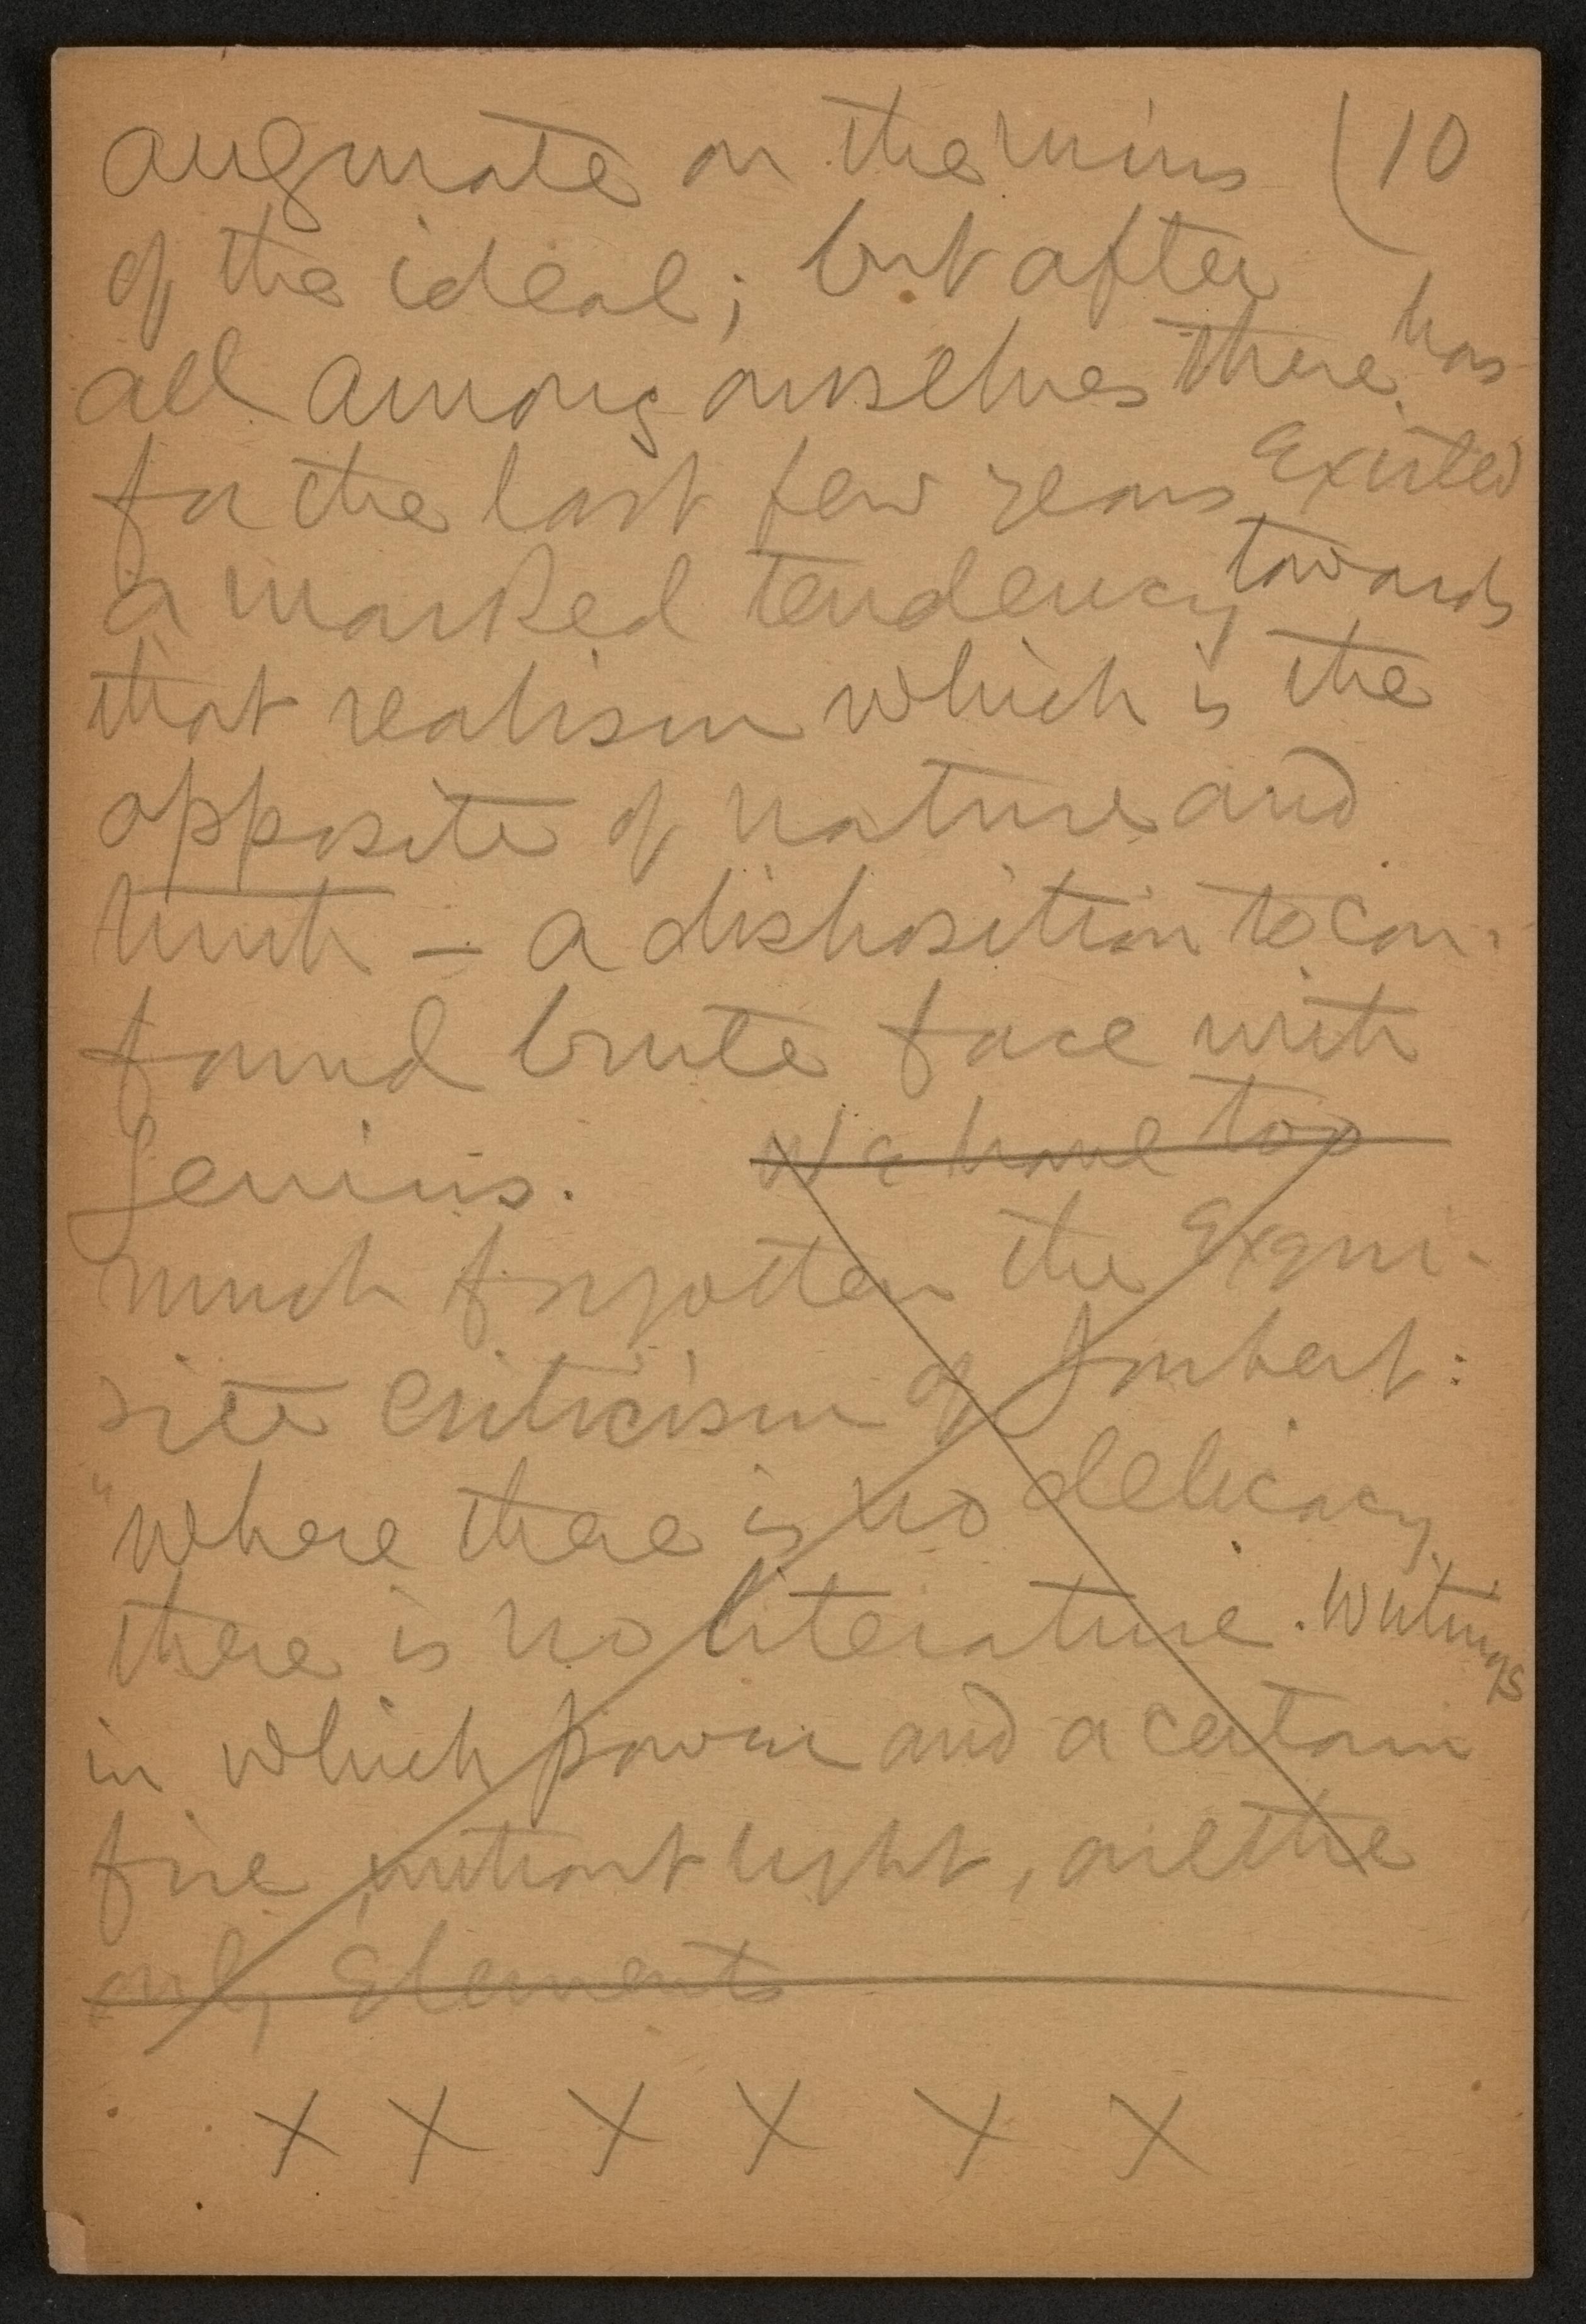 augmate on the ruins (10
of the ideal; but after
all among ourselves there has
for the last few years existed
a marked tendency towards
that realism which is the
opposite of nature and
truth — a disposition to con-
found brute force with
genius. We have too
much forgotten the exqui-
site criticism of Joubert:
"where there is no delicacy
there is no literature. Writings
in which power and a certain
fire, without light, are the
only elements
X X X X X X